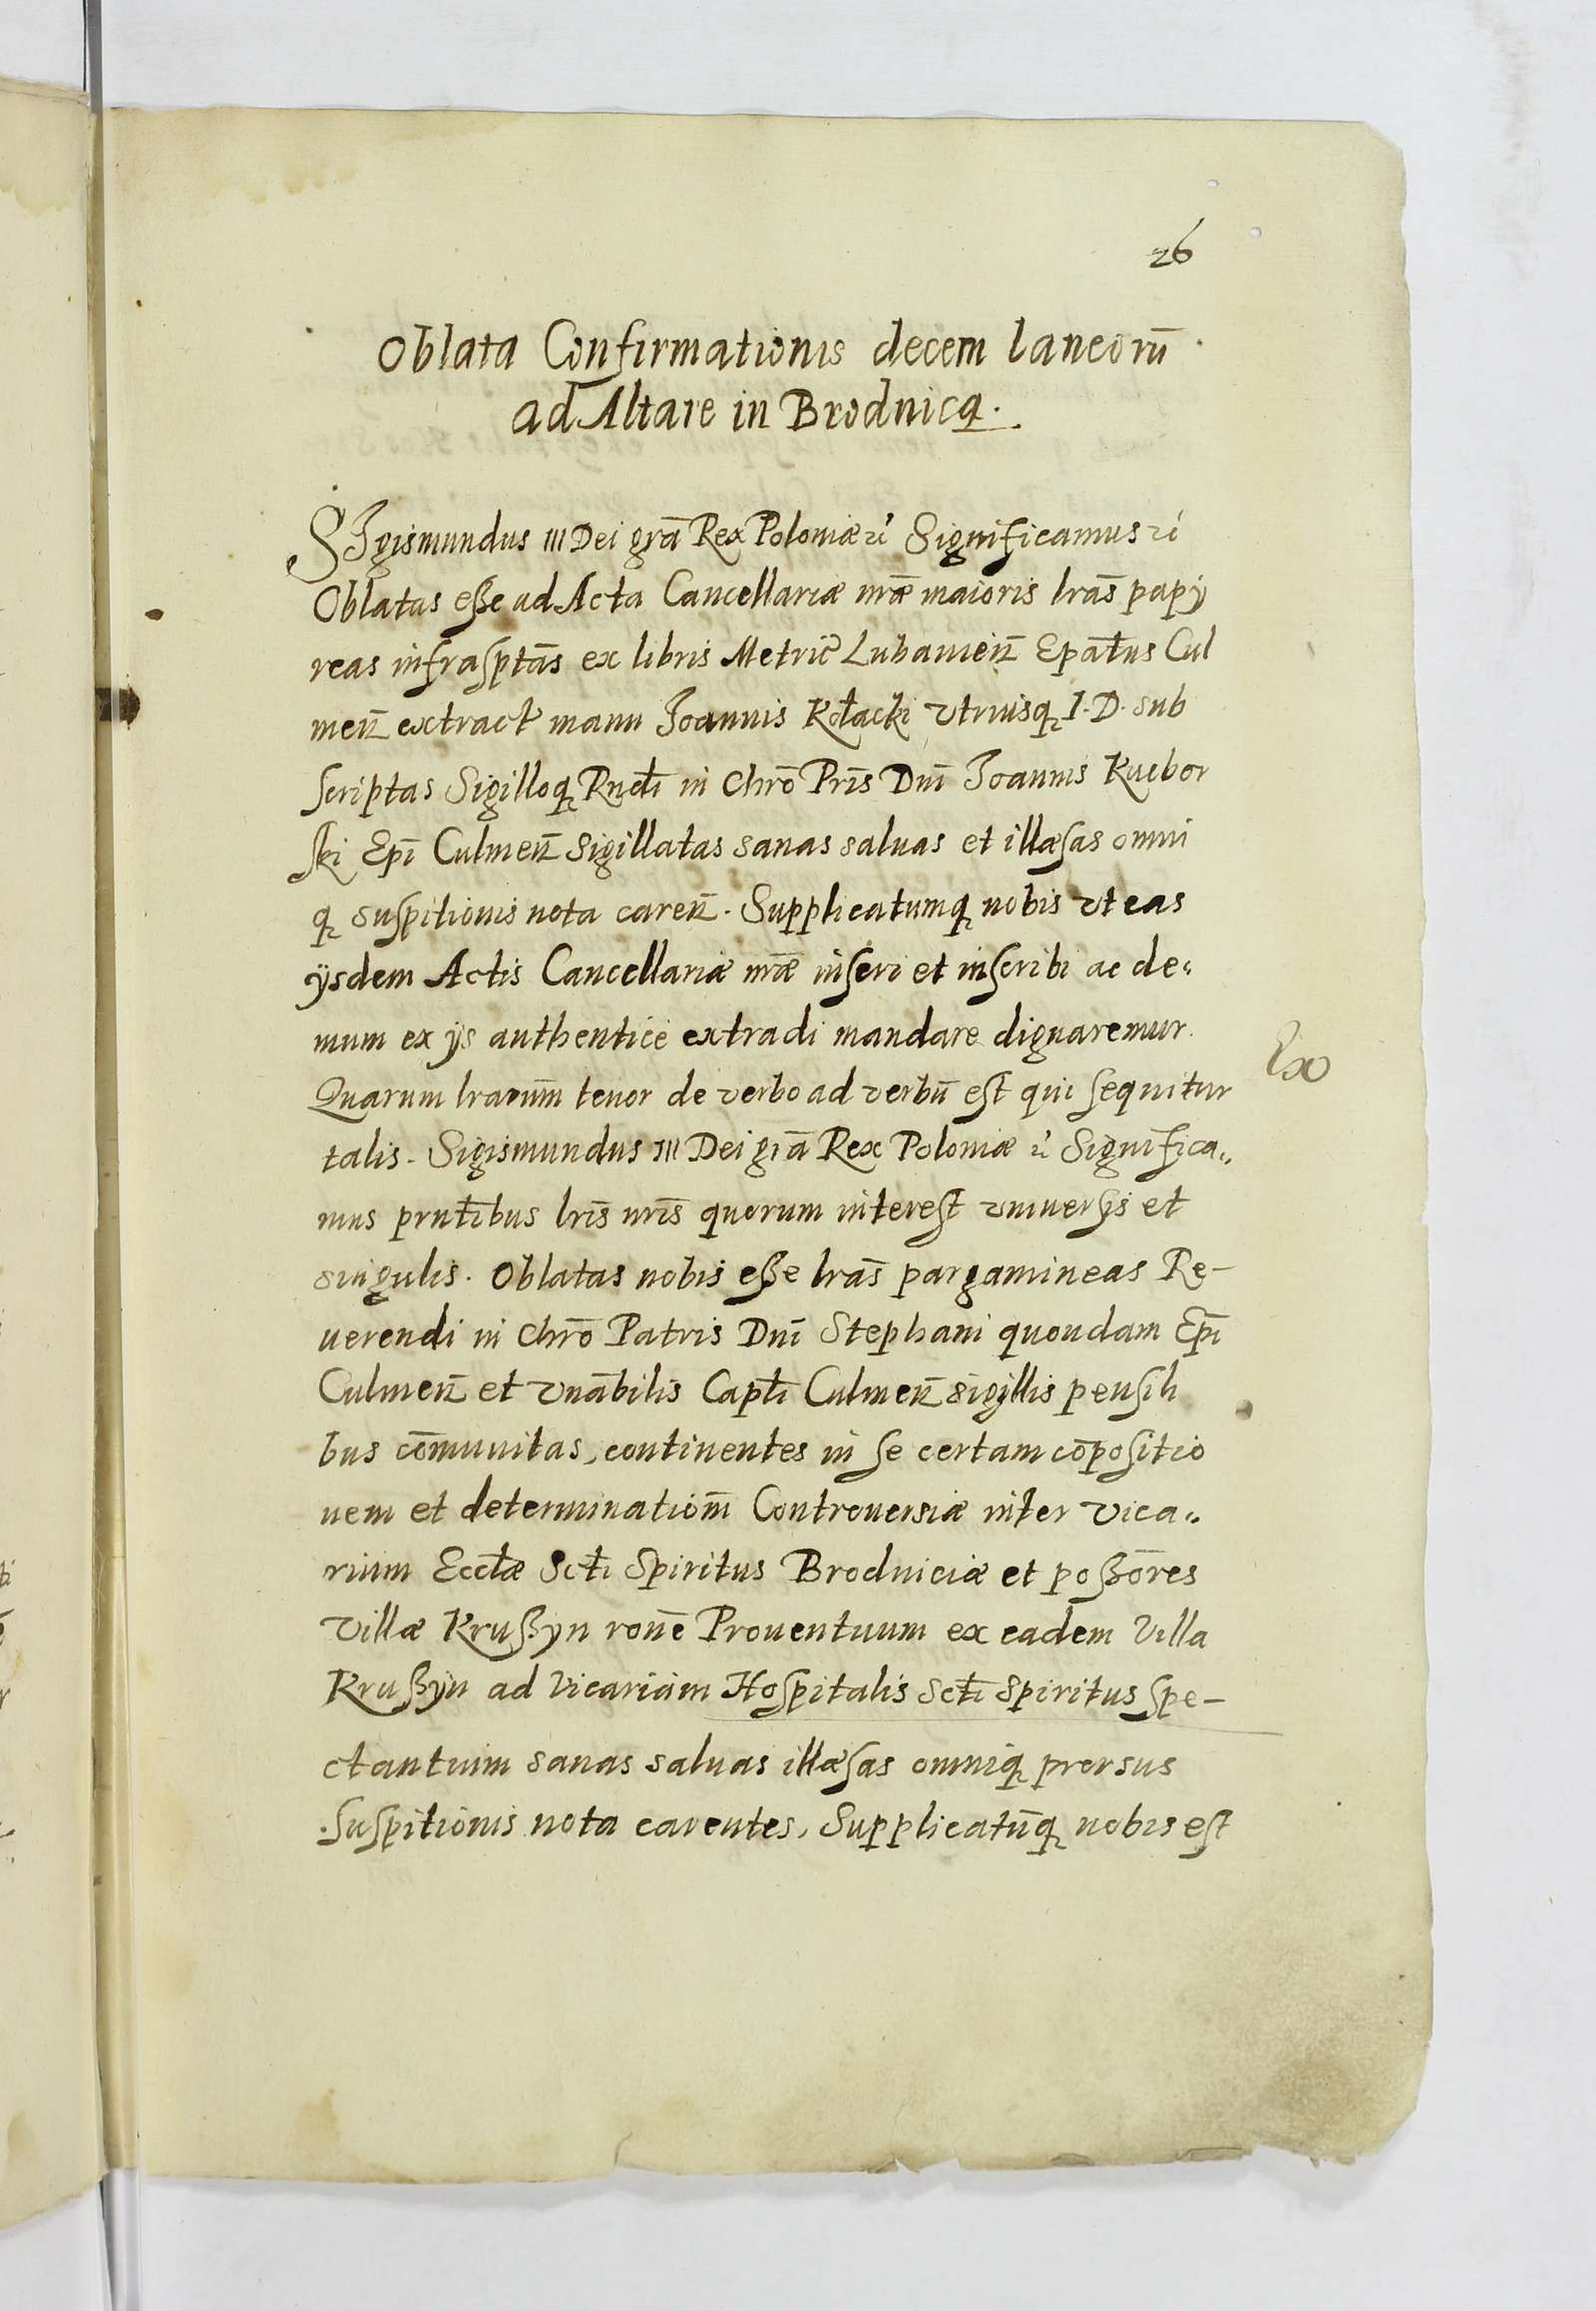 26
Oblata Confirmationis decem laneorū
ad Altare in Brodnicą.
SIgismundus III Dei grā Rex Poloniæ etc Significamus etc
Oblatas eße ad Acta Cancellariæ nrǣ maioris lrās papy
reas infrasptās ex libris Metric̄ Lubavien̄ Epat̄us Cul
men̄ extract̄ manu Joannis Kołacki vtriusq́ I. D. sub
scriptas Sigilloq́ Rndi̅ in Chrō Prīs Dnī Joannis Kuebor
ski Epī Culmen̄ sigillatas sanas saluas et illæsas omni
q́ suspitionis nota caren̄. Supplicatumq́ nobis vt eas
ijsdem Actis Cancellariæ nrǣ inseri et inscribi ac de„
mum ex ijs authenticè extradi mandare dignaremur.
Quarum lrarūm tenor de verbo ad verbū est qui sequitur
talis. Sigismundus III Dei grā Rex Poloniæ etc Significa„
mus prntībus lrīs nrīs quorum interest vniversis et
singulis. Oblatas nobis eße lrās pargamineas Re-
uerendi in Chrō Patris Dnī Stephani quondam Epī
Culmen̄ et Vnābilis Captī Culmen̄ sigillis pensili
bus cōmunitas, continentes in se certam cōpositio
nem et determinatiom̄ Controuersiæ inter Vica„
rium Eccłæ Sctī Spiritus Brodniciæ et poßōres
Villæ Krußyn ronē Prouentuum ex eadem Villa
Krußyn ad Vicariam Hospitalis Sctī Spiritus spe-
ctantium sanas saluas illæsas omniq́ prorsus
suspitionis nota carentes, Supplicatūq́ nobis est